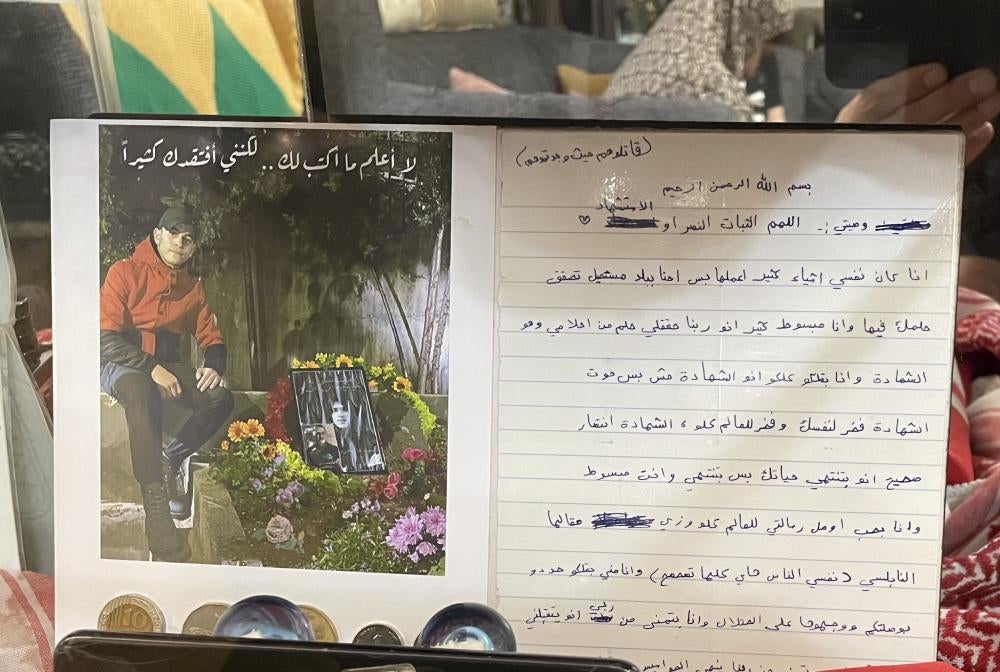 لا أعلم ما اكتب لك.. لكنني أفتقدك كثيراً
(قاتلوهم حيث وجدتموهم)
بسم الله الرحمن الرحيم
الاستشهاد
وصيتي :ـ اللهم الثبات النصر او ♡
انا كان نفسي اشياء كثير اعملها بس احنا ببلد مستحيل تحقق
حلمك فيها وانا مبسوط كثير انو ربنا حققلي حلم من احلامي وهو
الشهادة وانا بقلكو كلكو انو الشهادة مش بس موت
الشهادة فخر لنفسك وفخر للعالم كلو ، الشهادة انتصار
صحيح انو بتنتهي حياتك بس بتنتهي وانت مبسوط
وانا بحب اوصل رسالتي للعالم كلو وزي حقالها
النابلسي (نفسي الناس هاي كلها تصحصح) وانا مني بقلكو حددو
بوصلتكم ووجهوها على احتلال وانا بتمنى من ربي انو يتقبلني
10